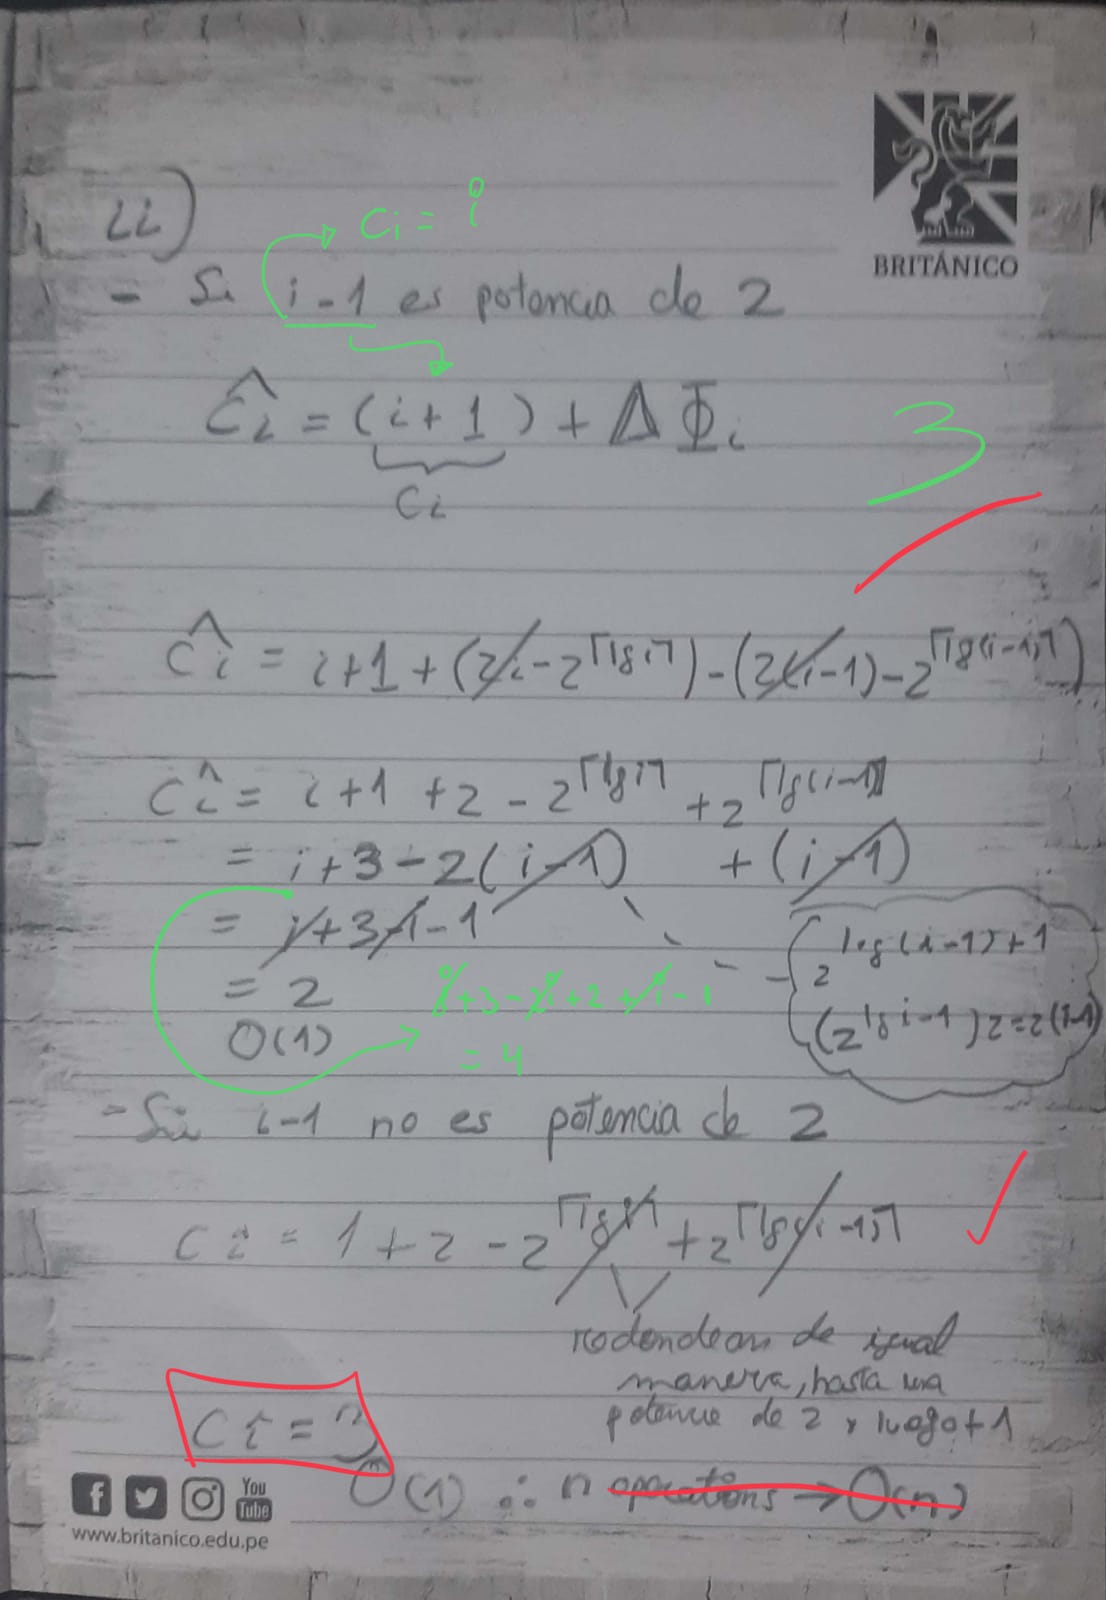 ii)
Ci = i
BRITÁNICO
- Si i-1 es potencia de 2
Ĉi = (i+1) + ΔΦi
Ci
3
Ĉi = i+1+(2i-2^⌈lg i⌉)-(2(i-1)-2^⌈lg(i-1)⌉)
Ĉi = i+1+2-2^⌈lg i⌉+2^⌈lg(i-1)⌉
= i+3-2(i-1) + (i-1)
= i+3-i-1
= 2
O(1)
i+3-2i+2+i-1
= 4
2^log(i-1)+1
(2^lg i-1)2=2(i-1)
- Si i-1 no es potencia de 2
Ĉi = 1+2-2^⌈lg i⌉+2^⌈lg(i-1)⌉
redondean de igual
manera, hasta una
potencia de 2 y luego+1
Ĉi = 3
O(1) ∴ n operations → O(n)
You
Tube
www.britanico.edu.pe